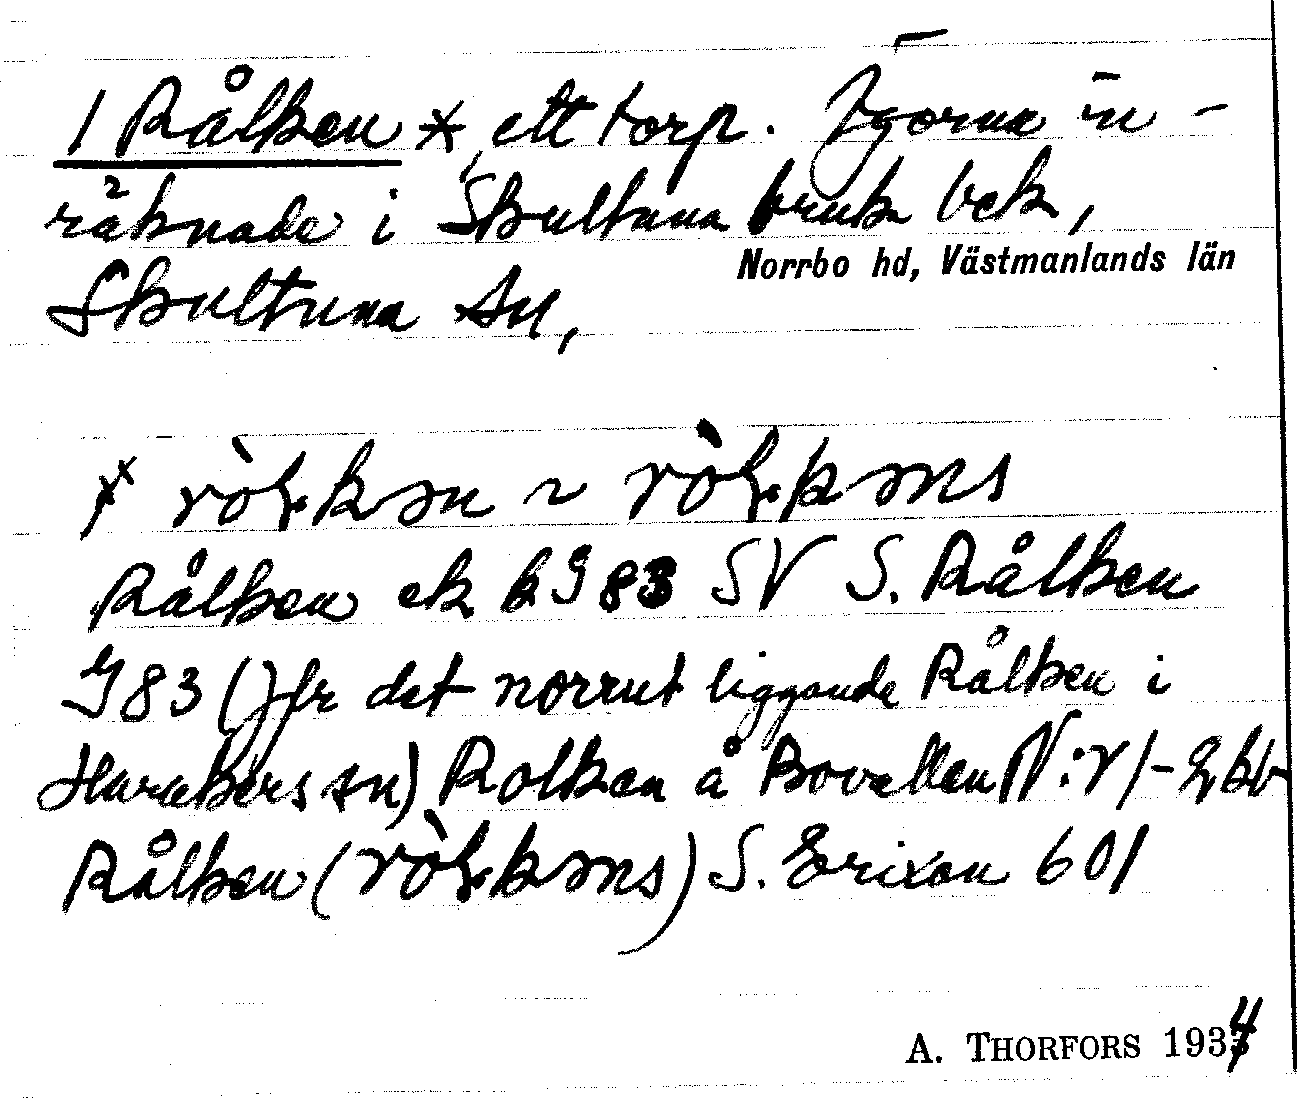 1 Rålken ×, ett torp. Ägorna in-
räknade i Skultuna bruk bek,
Norrbo hd, Västmanlands län
Skultuna sn,
Rålken ek bg 83 SV S. Rålken
G 83 (Jfr det norrut liggande Rålken i
Harakers sn) Rolken å Bovallen N:r 1-2 kb
Rålken ( ) S. Erixon 601
A. THORFORS 1934